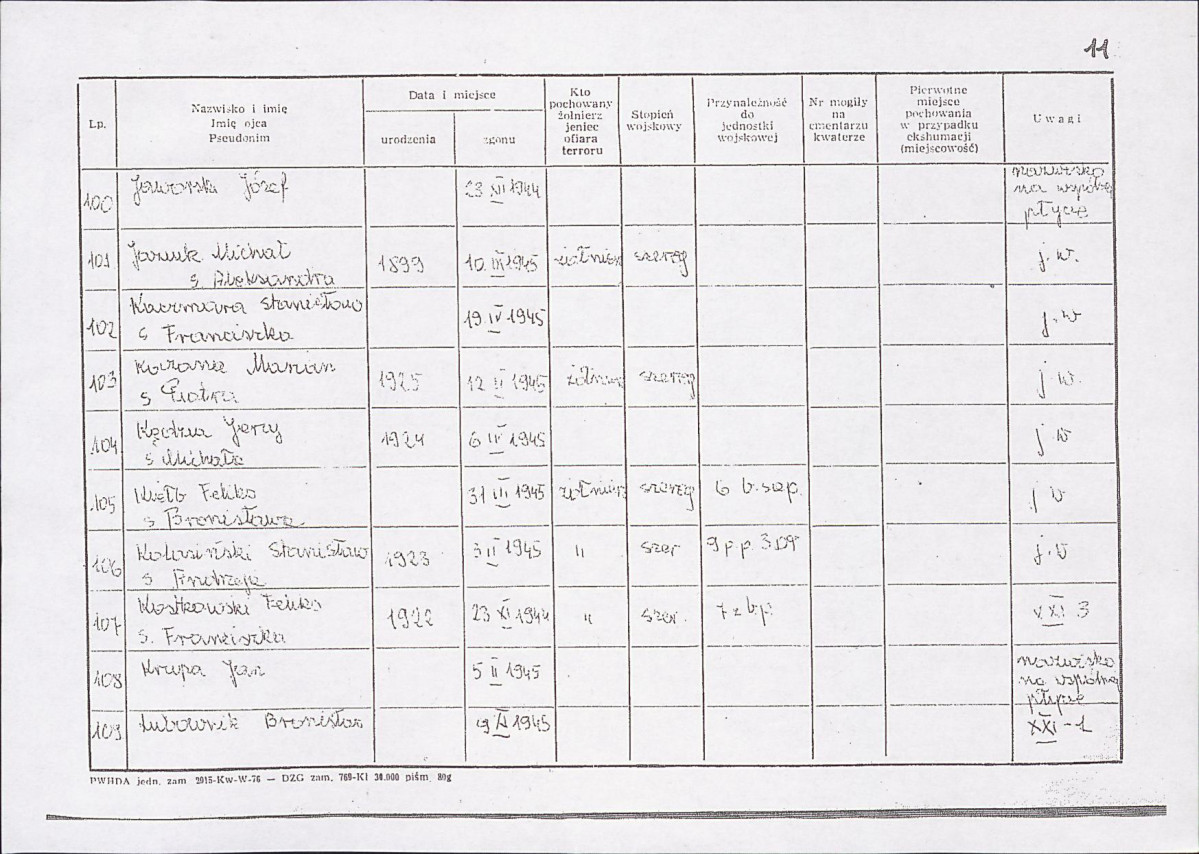 11
Lp.
Nazwisko i imię
Imię ojca
Pseudonim
Data i miejsce
urodzenia
zgonu
Kto
pochowany
żołnierz
jeniec
ofiara
terroru
Stopień
wojskowy
Przynależność
do
jednostki
wojskowej
Nr mogiły
na
cmentarzu
kwaterze
Pierwotne
miejsce
pochowania
w przypadku
ekshumacji
(miejscowość)
Uwagi
100 Jaworski Józef 23 XI 1944 nazwisko
na wspólnej
płycie
101 Michał 1899 10. 1945 żołnierz szereg j. w.
s. Aleksandra
102 Kaczmara Stanisław 19 IV 1945 j. w
s Franciszka
103 Marian 1925 12 II 1945 żołnierz szereg j w.
s Piotra
104 Jerzy 1924 6 1945 j w
s Michała
105 Feliks 31 III 1945 żołnierz szereg 6 b. sap. j w
s Bronisława
106 Kolasiński Stanisław 1923 3 II 1945 " szer 9 p.p. 3 DP j. w
s Andrzeja
107 Kostkowski Feliks 1922 23 XI 1944 " szer. 3
s. Franciszka
108 Krupa Jan 5 II 1945 nazwisko
na wspólnej
płycie
109 Lubownik Bronisław 1945 XXI - 1
PWHDA jedn. zam 2915-Kw-W-76 — DZG zam. 769-Kl 30.000 piśm. 80g